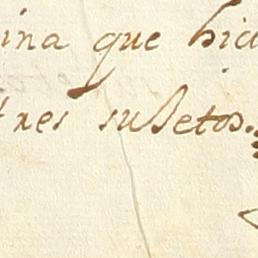 ina que hici
tres susetos.